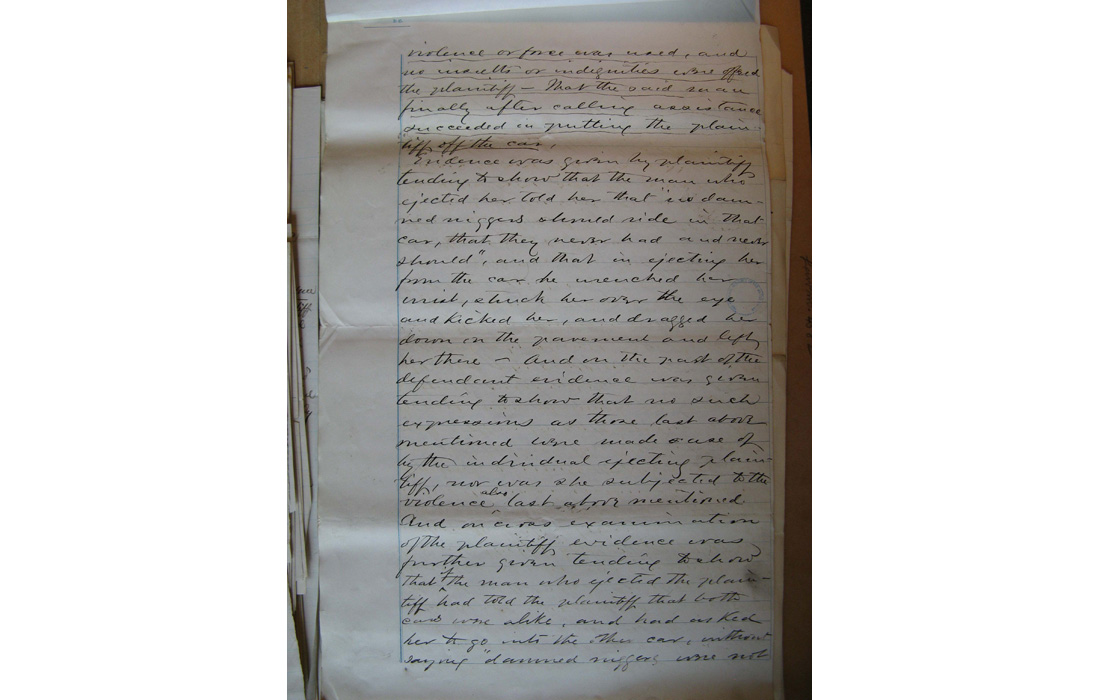 violence or force was used, and
no insults or indignities were offered
the plaintiff — That the said man
finally after calling assistance
succeeded in putting the plain-
tiff off the car.
Evidence was given by plaintiff
tending to show that the man who
ejected her told her that "no dam-
ned niggers should ride in that
car, that they never had and never
should", and that in ejecting her
from the car he wrenched her
wrist, struck her over the eye
and kicked her, and dragged her
down on the pavement and left
her there — And on the part of the
defendant evidence was given
tending to show that no such
expressions as those last above
mentioned were made use of
by the individual ejecting plain-
tiff, nor was she subjected to the
violence also last above mentioned
And on cross examination
of the plaintiff evidence was
further given tending to show
that if the man who ejected the plain-
tiff had told the plaintiff that both
cars were alike, and had asked
her to go into the other car, without
saying "damned niggers were not